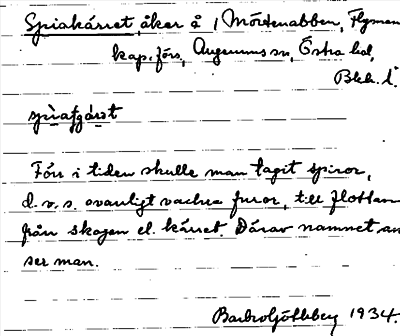 Spiakärret, åker å 1 Mörtenabben, Flymen
kap. förs, Augerums sn, Östra hd,
Blek. l.
spiafgärst
Förr i tiden skulle man tagit spiror,
d.v.s. ovanligt vackra furor, till flottan
från skogen el. kärret. Därav namnet an-
ser man.
1934.